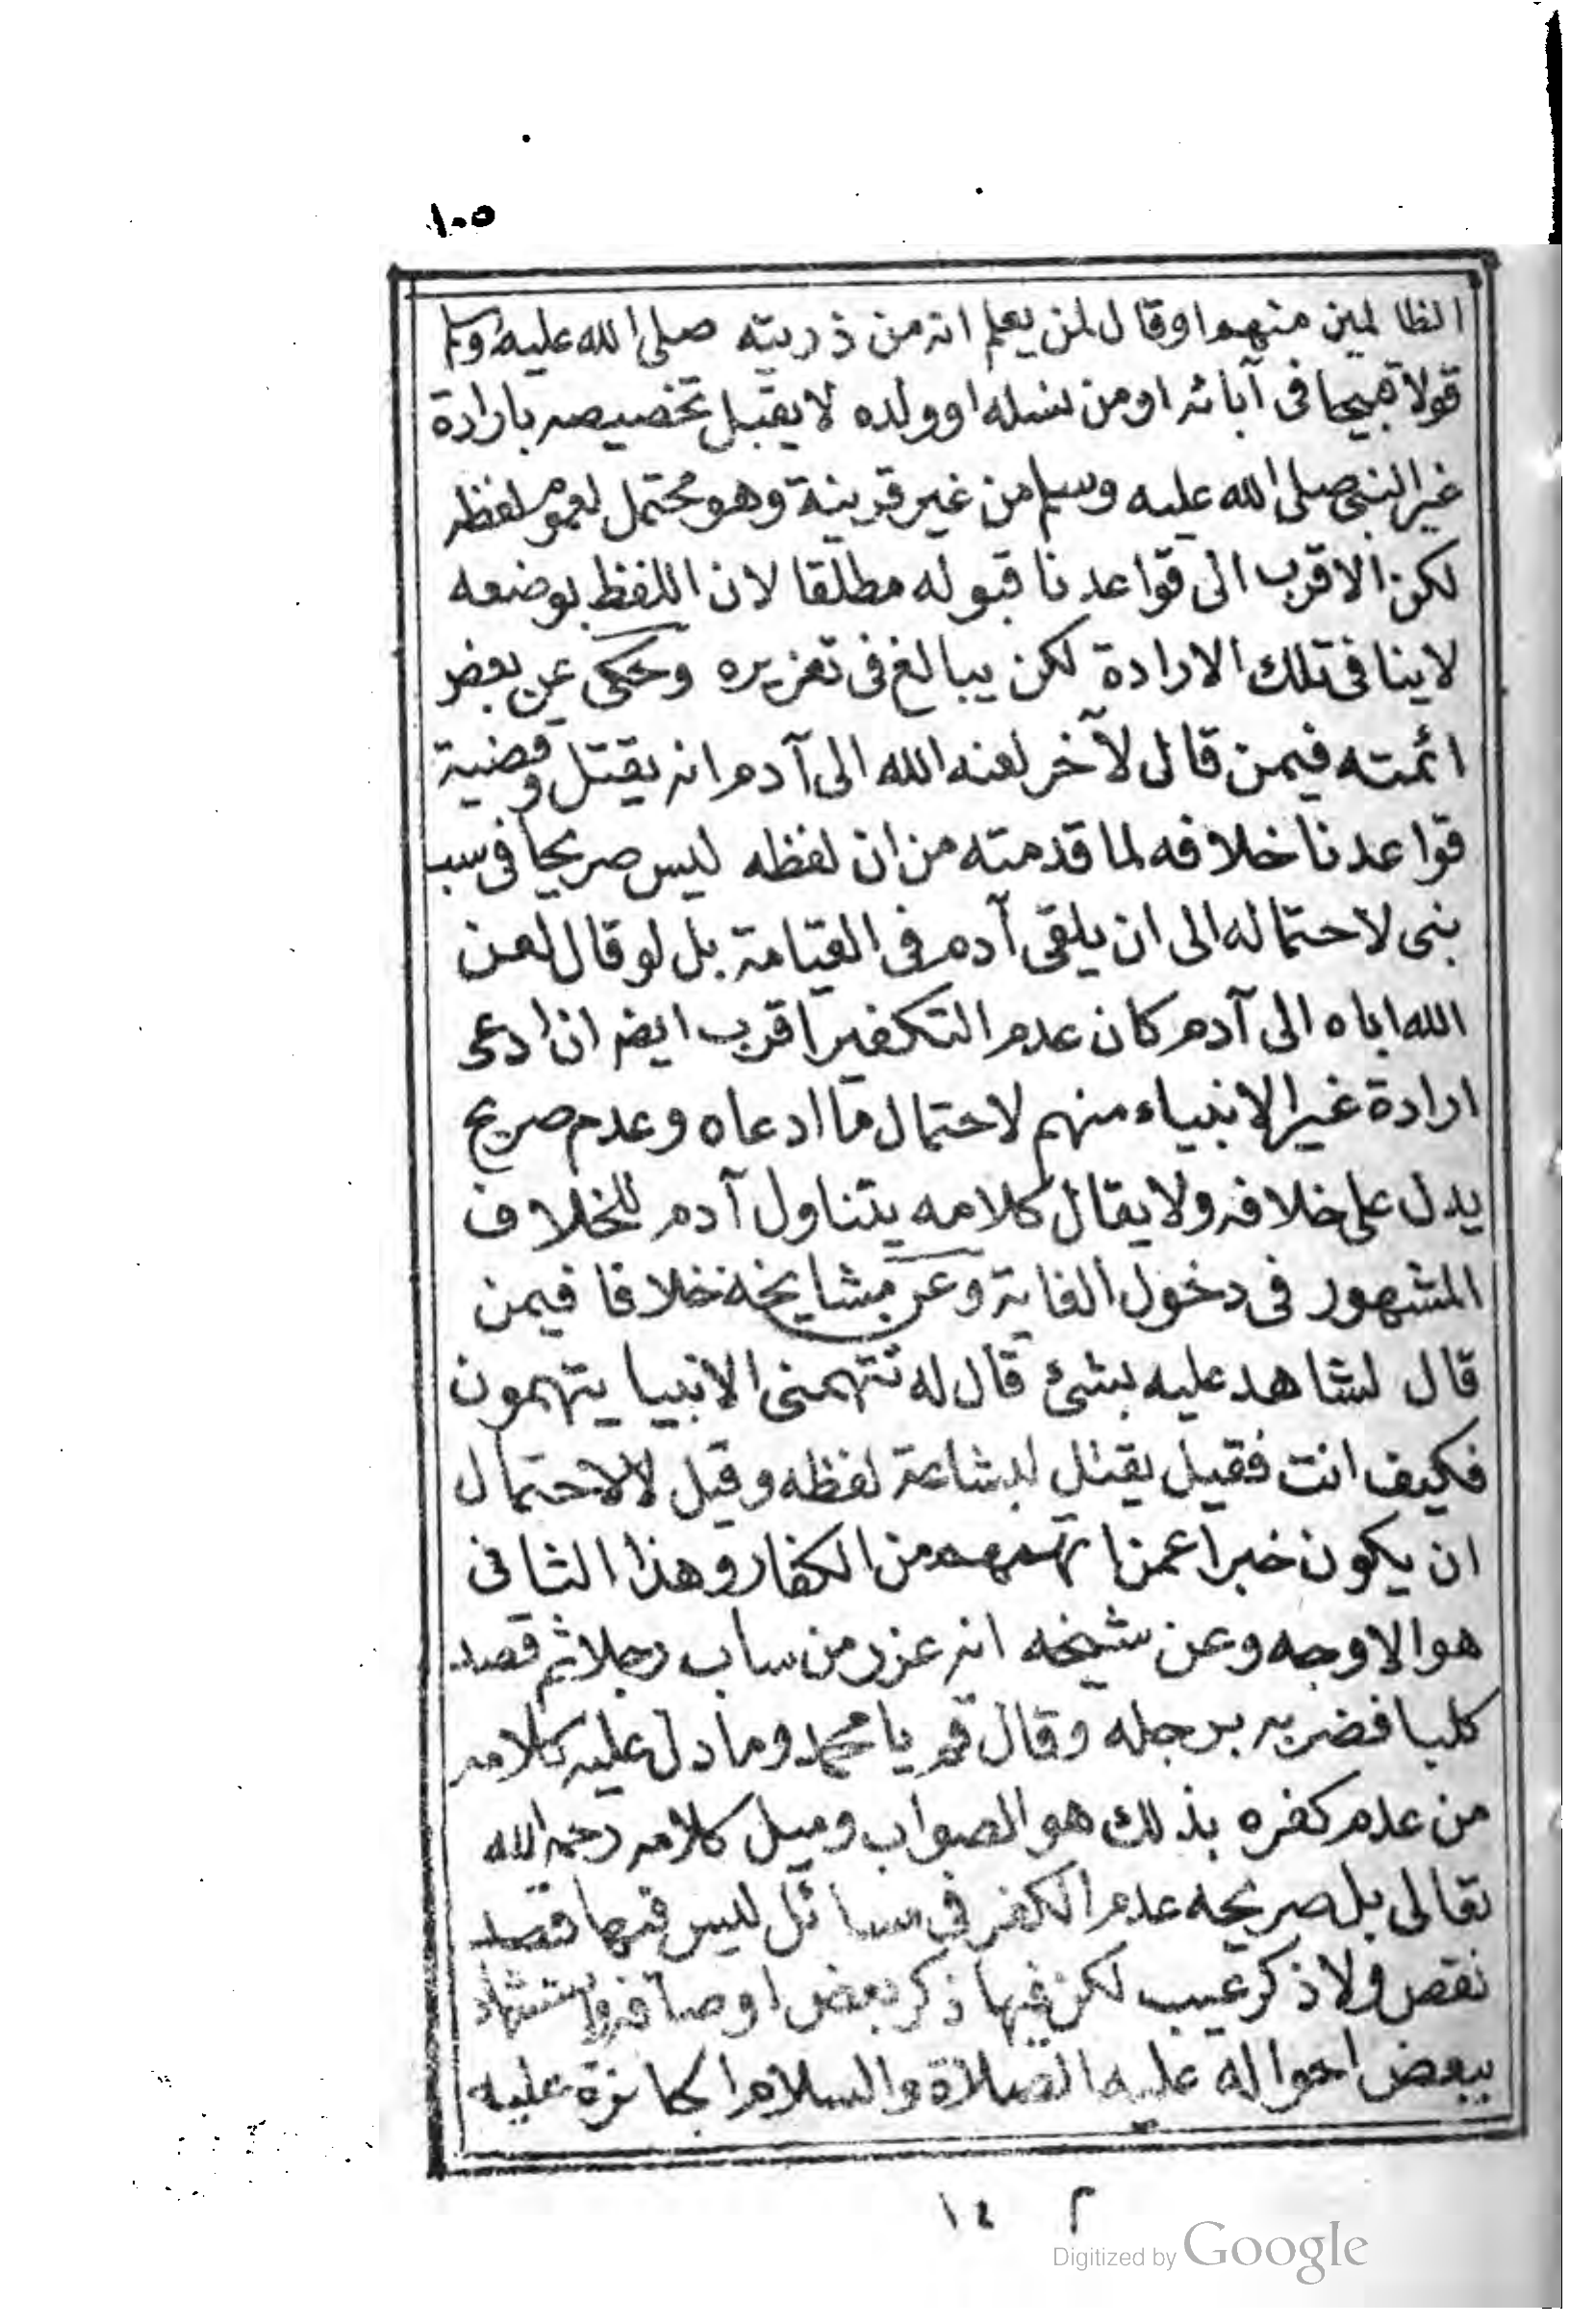 ١٠٥
الظالمين منهم او قال لمن يعلم انه من ذريته صلى الله عليه وسلم
قولا قبيحا فى آبائه او من نسله او ولده لا يقبل تخصيصه بارادة
غير النبى صلى الله عليه وسلم من غير قرينة وهو محتمل لعموم لفظه
لكن الاقرب الى قواعدنا قبوله مطلقا لان اللفظ بوضعه
لا ينافى تلك الارادة لكن يبالغ فى تعزيره وحكى عن بعض
ائمته فيمن قال لآخر لعنه الله الى آدم انه يقتل وقضية
قواعدنا خلافه لما قدمته من ان لفظه ليس صريحا فى سب
نبى لاحتماله الى ان يلقى آدم فى القيامة بل لو قال لعن
الله اباه الى آدم كان عدم التكفير اقرب ايضا ان ادعى
ارادة غير الانبياء منهم لاحتمال ما ادعاه وعدم صريح
يدل على خلافه ولا يقال كلامه يتناول آدم للخلاف
المشهور فى دخول الغاية وعن مشايخه خلافا فيمن
قال لشاهد عليه بشئ قال له تتهمنى الانبيا يتهمون
فكيف انت فقيل يقتل لبشاعة لفظه وقيل لا لاحتمال
ان يكون خبرا عمن اتهمهم من الكفار وهذا الثانى
هو الاوجه وعن شيخه انه عزر من ساب رجلا ثم قصد
كلبا فضربه برجله وقال قم يا محمد وما دل عليه كلامه
من عدم كفره بذلك هو الصواب وميل كلامه رحمه الله
تعالى بل صريحه عدم الكفر فى مسائل ليس فيها قصد
نقص ولا ذكر عيب لكن فيها ذكر بعض اوصافه واستشهاد
ببعض احواله عليه الصلاة والسلام الجائزة عليه
م ١٤
Digitized by Google